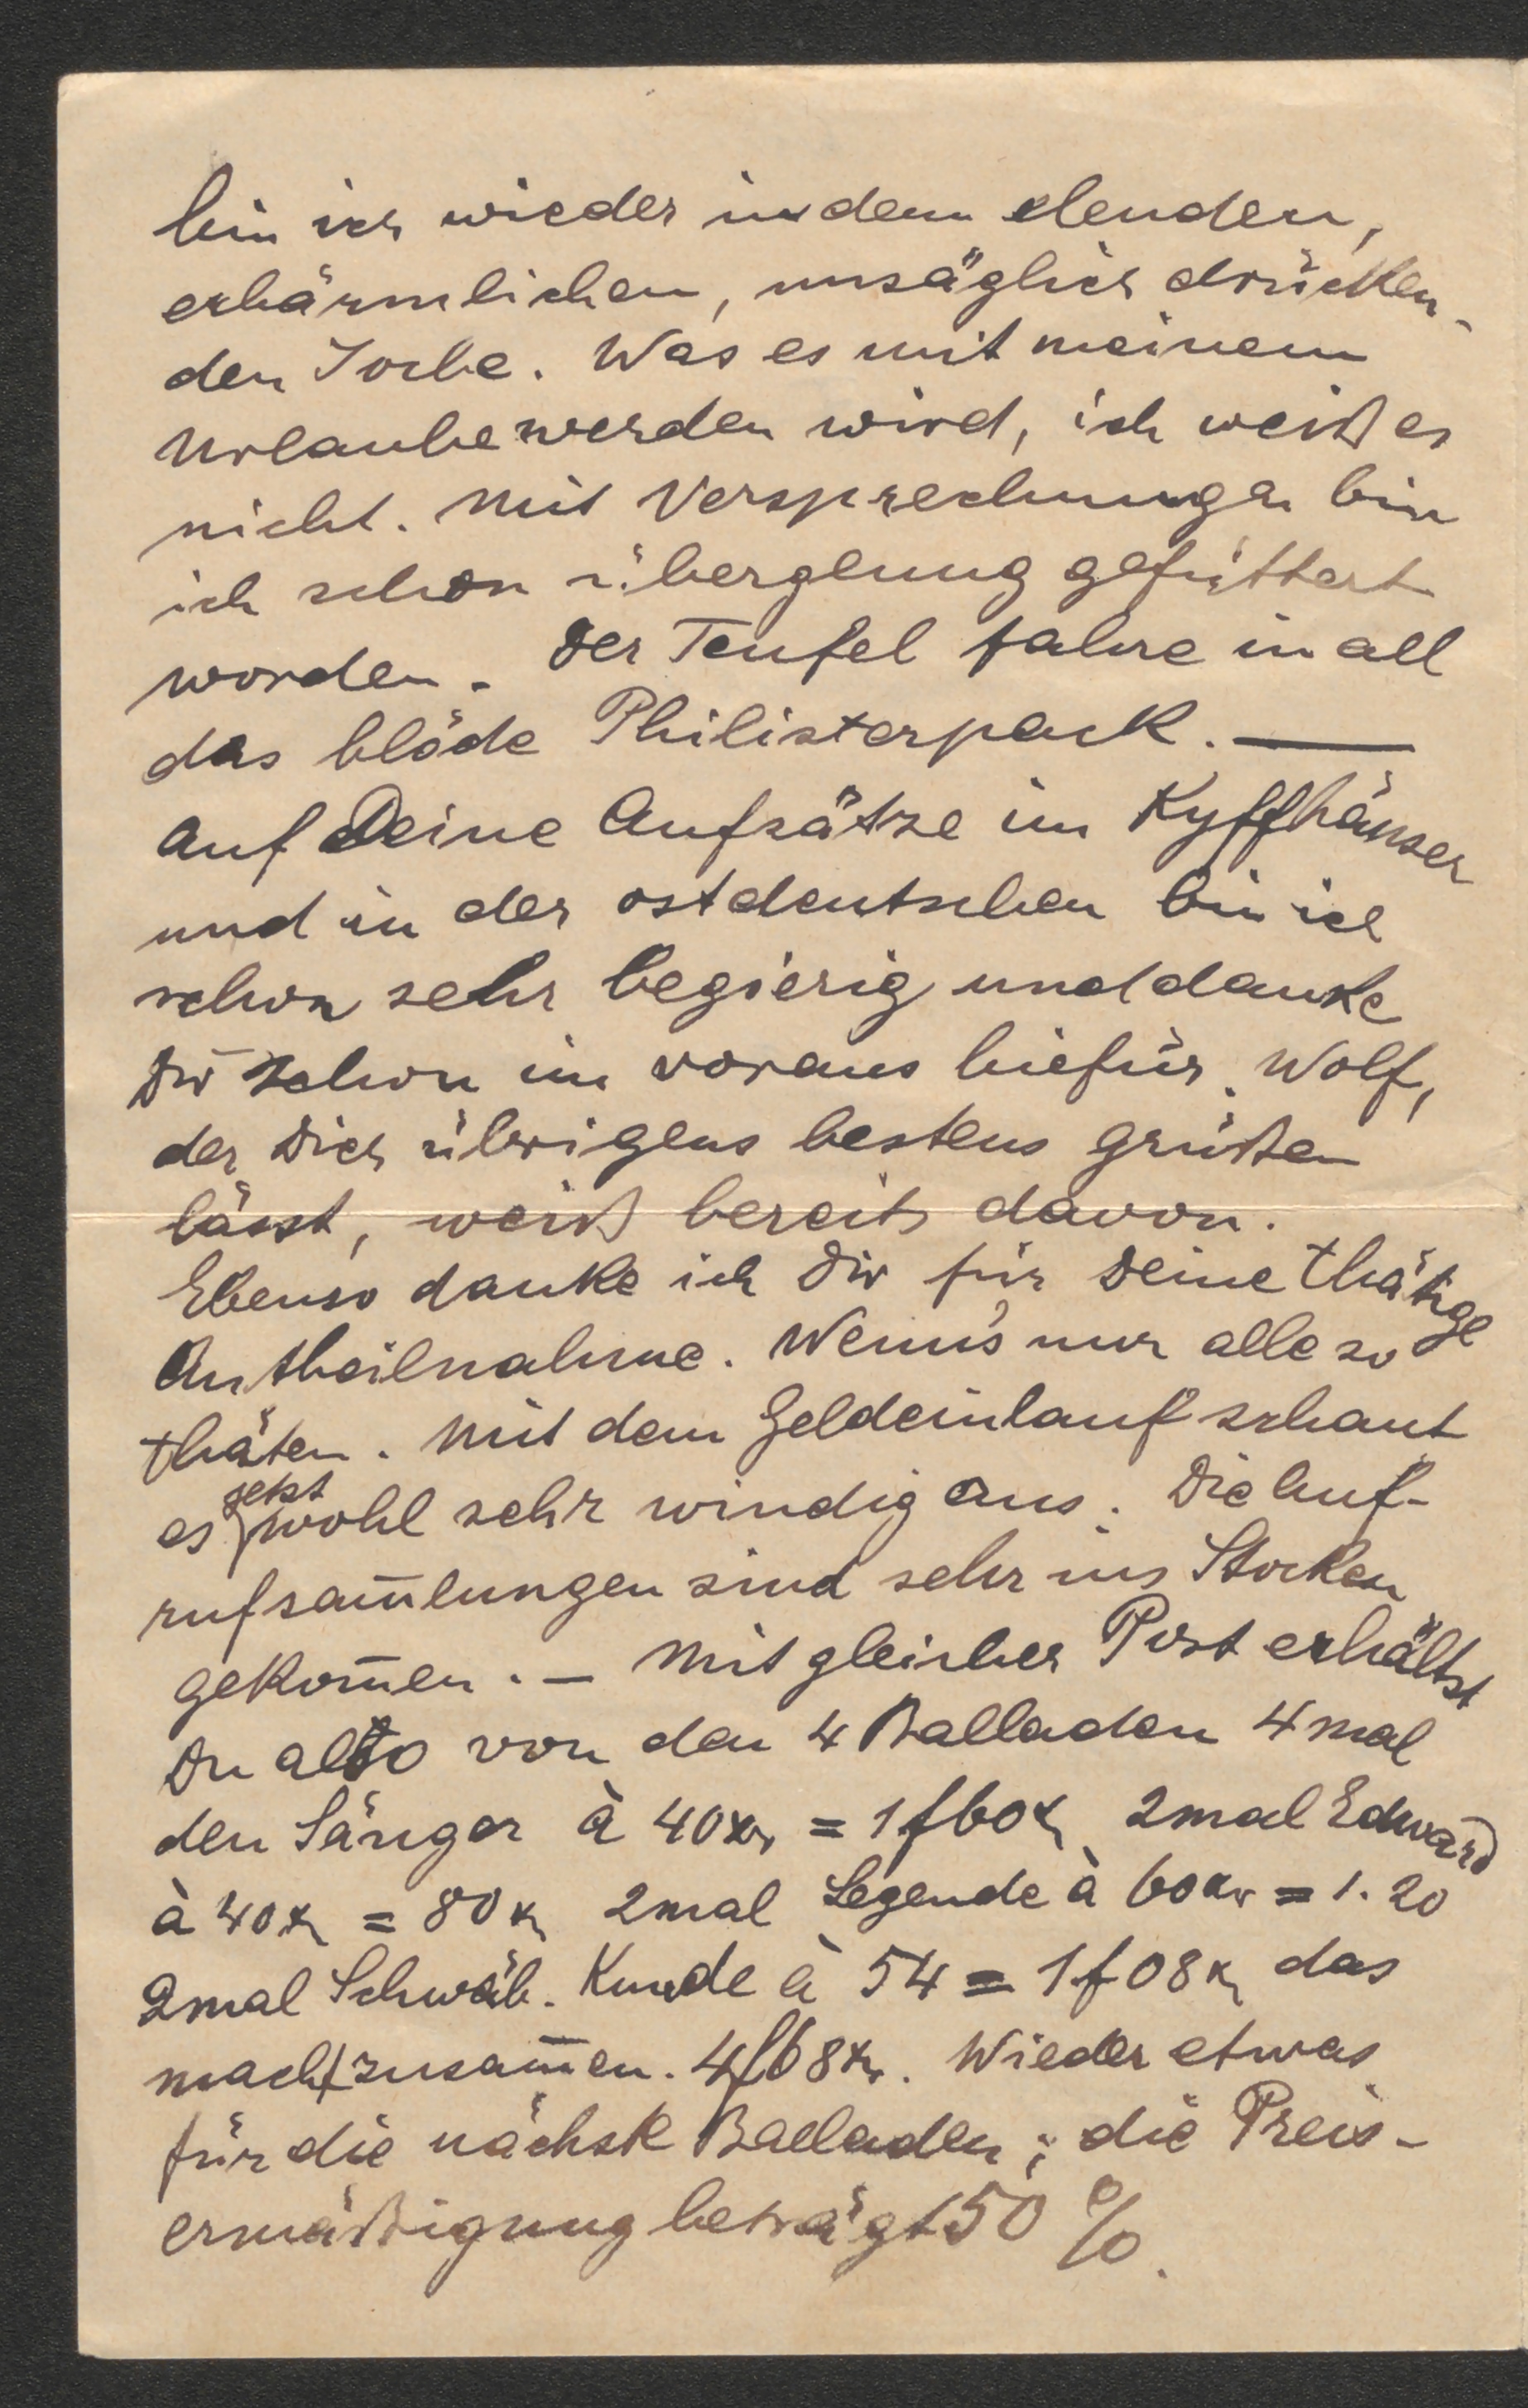 bin ich wieder in dem elenden,
erbärmlichen, unsäglich drücken-
den Joche. Was es mit meinem
Urlaube werden wird, ich weiß es
nicht. Mit Versprechungen bin
ich schon übergenug gefüttert
worden. Der Teufel fahre in all
das blöde Philisterpack. —
Auf Deine Aufsätze im Kyffhäuser
und in der ostdeutschen bin ich
schon sehr begierig und danke
Dir schon im voraus hiefür. Wolf,
der Dich übrigens bestens grüßen
lässt, weiß bereits davon.
Ebenso danke ich Dir für Deine thätige
Antheilnahme. Wenn's nur alle so
thäten. Mit dem Geldeinlauf schaut
es jetzt wohl sehr windig aus. Die Auf-
rufsam̄lungen sind sehr ins Stocken
gekom̄en. – Mit gleicher Post erhältst
Du also von den 4 Balladen 4mal
den Sänger à 40 kr = 1 f 60 kr 2mal Edward
à 40 kr = 80 kr 2mal Legende à 60 kr = 1.20
2mal Schwäb. Kunde à 54 = 1 f 08 kr das
macht zusam̄en. 4 f 68 kr. Wieder etwas
für die nächste Balladen; die Preis-
ermäßigung beträgt 50 %.